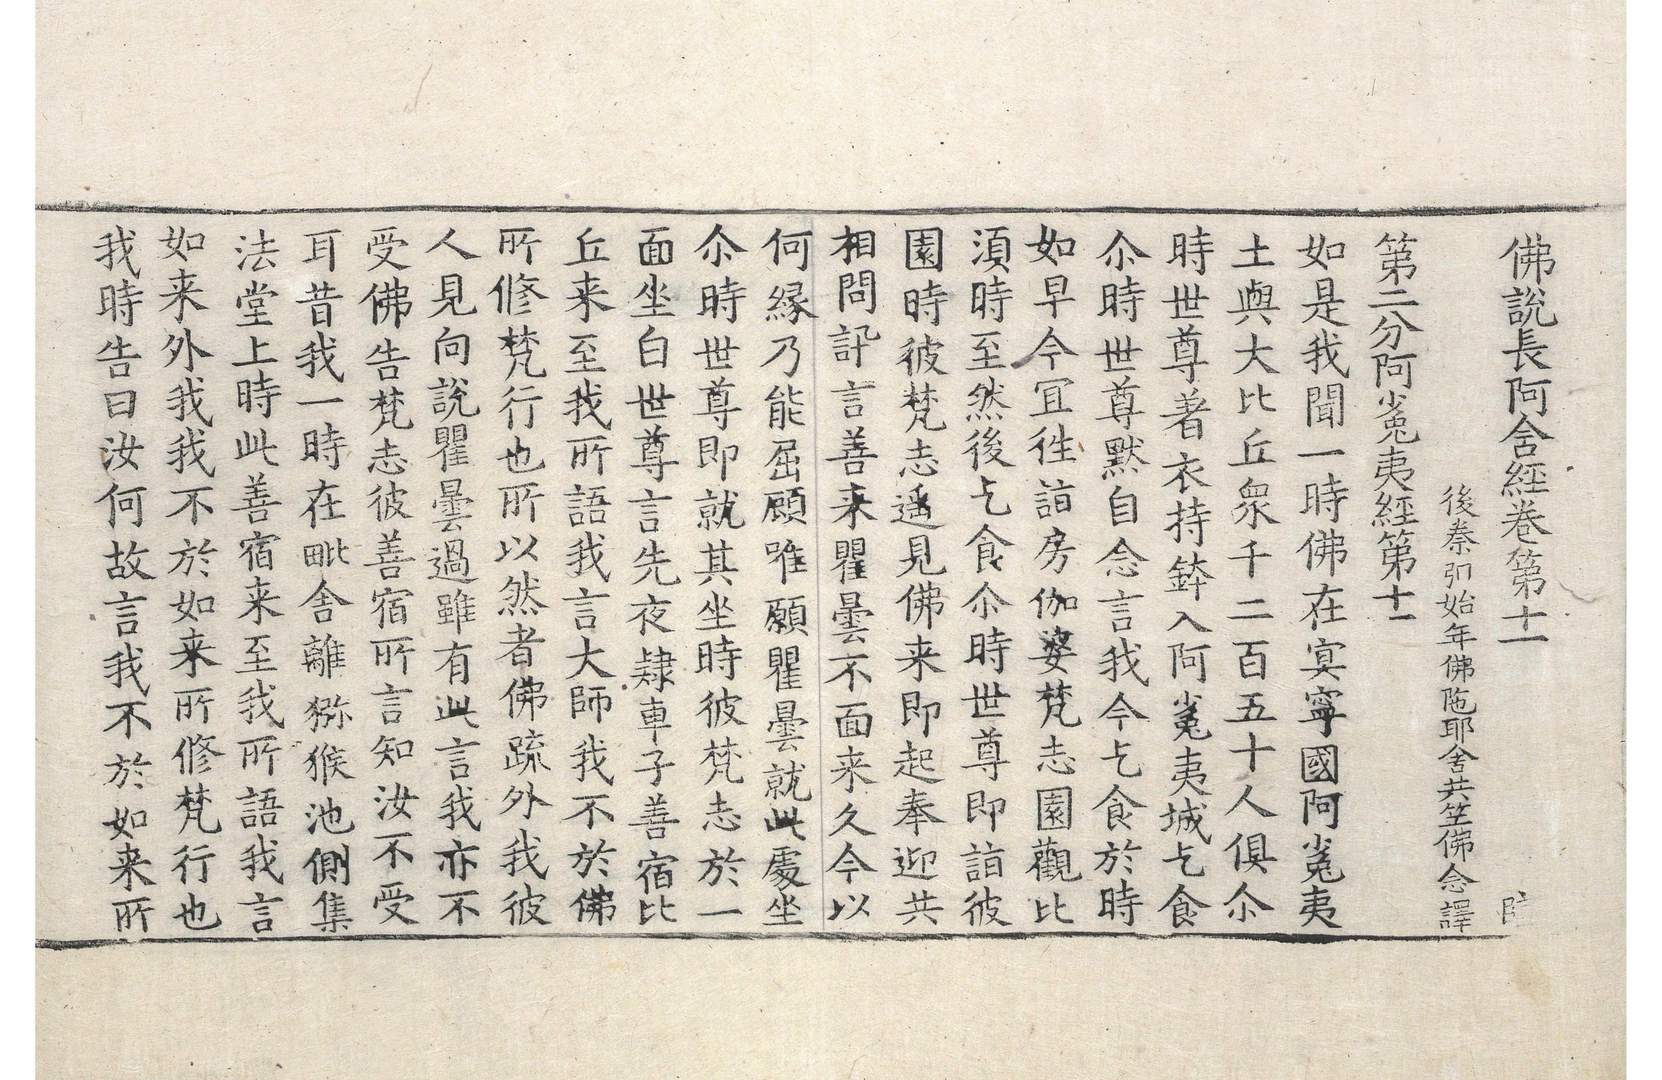 佛說長阿含經卷第十一
後秦弘始年佛陁耶舍共竺佛念譯
第二分阿㝹夷經第十一
如是我聞一時佛在㝠寧國阿㝹夷
土與大比丘衆千二百五十人俱尒
時世尊著衣持鉢入阿㝹夷城乞食
尒時世尊默自念言我今乞食於時
如早今冝徃詣房伽婆梵志園觀比
湏時至然後乞食尒時世尊即詣彼
園時彼梵志遥見佛来即起奉迎共
相問訊言善来瞿曇不面来久今以
何縁乃能屈顧唯願瞿曇就此處坐
尒時世尊即就其坐時彼梵志於一
面坐白世尊言先夜隸車子善宿比
丘来至我所語我言大師我不於佛
所修梵行也所以然者佛疏外我彼
人見向說瞿曇過雖有此言我亦不
受佛告梵志彼善宿所言知汝不受
耳昔我一時在毗舍離猕猴池側集
法堂上時此善宿来至我所語我言
如来外我我不於如来所修梵行也
我時告曰汝何故言我不於如来所